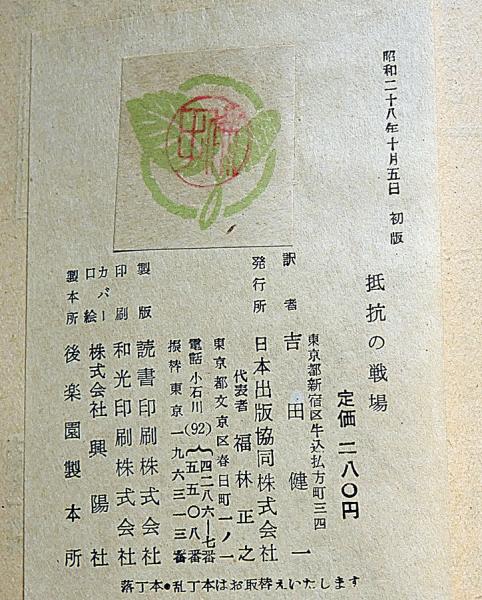 昭和二十八年十月五日 初版
抵抗の戦場
定価 二八〇円
東京都新宿区牛込払方町三四
訳者 吉田健一
発行所 日本出版協同株式会社
代表者 福林正之
東京都文京区春日町一ノ一
電話 小石川(92){四二八六―七番
五五〇八番
振替東京一九六三一三番
製版 読書印刷株式会社
印刷 和光印刷株式会社
カバー
口絵 株式会社興陽社
製本所 後楽園製本所
落丁本・乱丁本はお取替えいたします